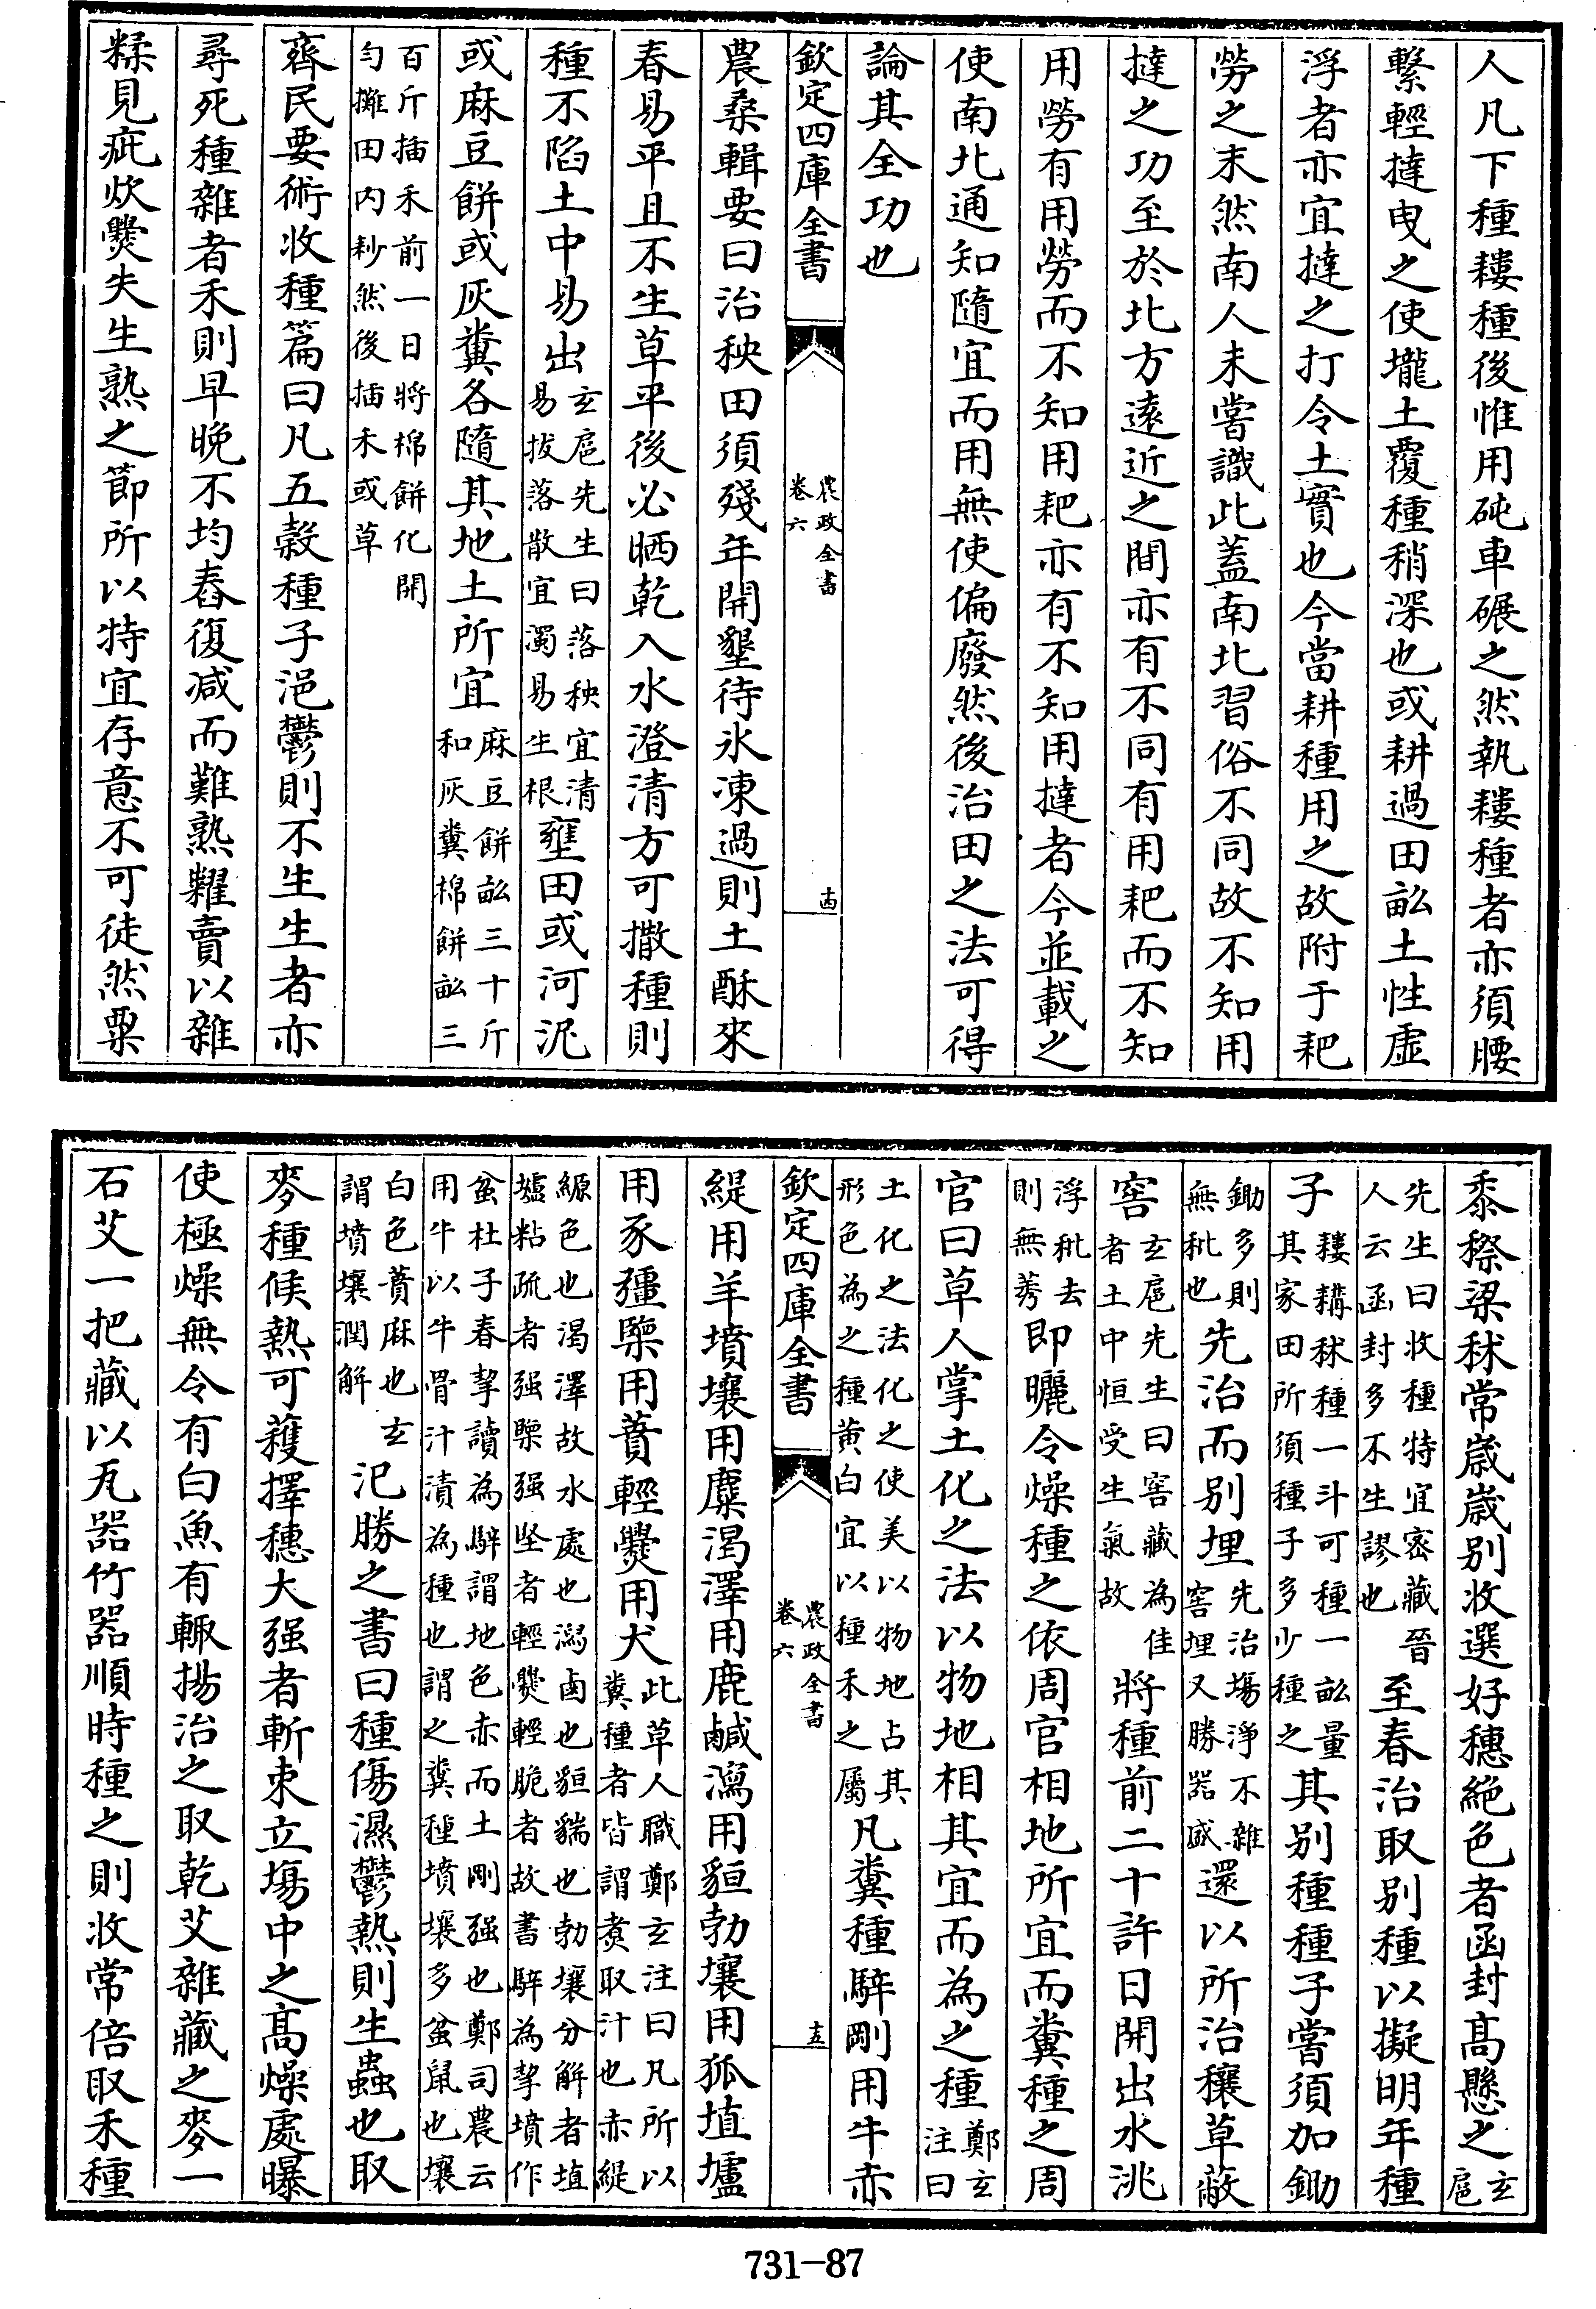 人凡下種耬種後惟用砘車碾之然執耬種者亦須腰
繫輕撻曳之使壠土覆種稍深也或耕過田畝土性虛
浮者亦宜撻之打令土實也今當耕種用之故附于耙
勞之末然南人未嘗識此蓋南北習俗不同故不知用
撻之功至於北方遠近之間亦有不同有用耙而不知
用勞有用勞而不知用耙亦有不知用撻者今並載之
使南北通知隨宜而用無使偏廢然後治田之法可得
論其全功也
欽定四庫全書
農政全書
卷六
十四
農桑輯要曰治秧田須殘年開墾待氷凍過則土酥來
春易平且不生草平後必晒乾入水澄清方可撒種則
種不陷土中易出
玄扈先生曰落秧宜清
易拔落散宜濁易生根
壅田或河泥
或麻豆餅或灰糞各隨其地土所宜
麻豆餅畝三十斤
和灰糞棉餅畝三
百斤插禾前一日將棉餅化開
勻攤田内耖然後插禾或草
齊民要術收種篇曰凡五穀種子浥鬱則不生生者亦
尋死種雜者禾則早晚不均舂復减而難熟糶賣以雜
糅見疵炊爨失生熟之節所以特宜存意不可徒然粟
黍穄梁秫常嵗嵗别收選好穗絶色者函封高懸之
玄
扈
先生曰收種特宜密藏晉
人云函封多不生謬也
至春治取别種以擬明年種
子
耬耩秫種一斗可種一畝量
其家田所須種子多少種之
其别種種子嘗須加鋤
鋤多則
無秕也
先治而别埋
先治塲淨不雜
窖埋又勝器盛
還以所治穰草蔽
窖
玄扈先生曰窖藏為佳
者土中恒受生氣故
將種前二十許日開出水洮
浮秕去
則無莠
即曬令燥種之依周官相地所宜而糞種之周
官曰草人掌土化之法以物地相其宜而為之種
鄭玄
注曰
土化之法化之使美以物地占其
形色為之種黄白宜以種禾之屬
凡糞種騂剛用牛赤
欽定四庫全書
農政全書
卷六
十五
緹用羊墳壤用麋渴澤用鹿鹹瀉用貆勃壤用狐埴壚
用豕彊㯺用蕡輕㸑用犬
此草人職鄭玄注曰凡所以
糞種者皆謂煑取汁也赤緹
縓色也渴澤故水處也潟鹵也貆貒也勃壤分解者埴
壚粘疏者强㯺强坚者輕㸑輕脆者故書騂為挈墳作
蚠杜子春挈讀為騂謂地色赤而土剛强也鄭司農云
用牛以牛骨汁漬為種也謂之糞種墳壤多蚠鼠也壤
白色蕡麻也玄
謂墳壤潤解
氾勝之書曰種傷濕鬱熱則生蟲也取
麥種候熟可穫擇穗大强者斬束立塲中之高燥處曝
使極燥無令有白魚有輒揚治之取乾艾雜藏之麥一
石艾一把藏以瓦器竹器順時種之則收常倍取禾種
731-87